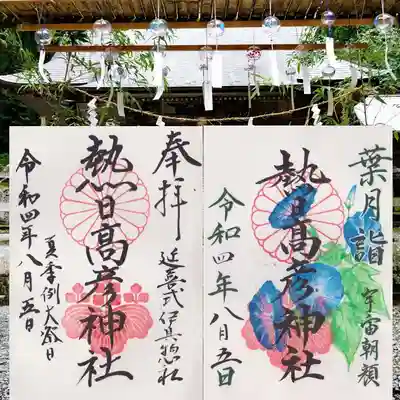 奉拝
延喜式伊具郡総社
熱日高彦神社
夏季例大祭日
令和四年八月五日
葉月詣
宇宙朝顔
熱日高彦神社
令和四年八月五日